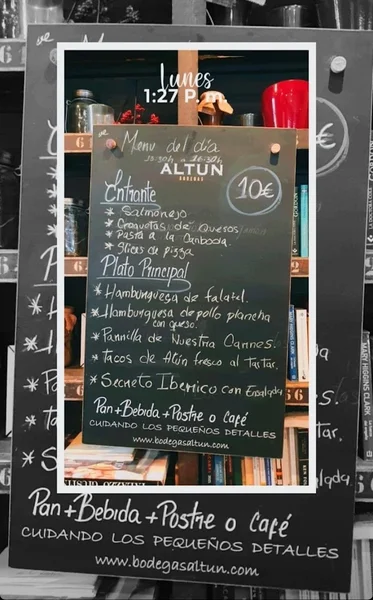 Lunes
1:27 P. m
Menu del día
ALTUN
BODEGAS
10€
Entrante
* Salmorejo
* Croquetas de Quesos
* Pasta a la Carbocla.
* Slices de pizza
Plato Principal
* Hamburguesa de falafel.
* Hamburguesa de pollo plancha
con queso.
* Parrilla de Nuestra Carnes.
* Tacos de Atún fresco al Tartar.
* Secreto Iberrico con Ensalada
Pan+Bebida+Postre o Café
CUIDANDO LOS PEQUEÑOS DETALLES
www.bodegasaltun.com
Pan+Bebida+Postre o Café
CUIDANDO LOS PEQUEÑOS DETALLES
www.bodegasaltun.com
MARY HIGGINS CLARK